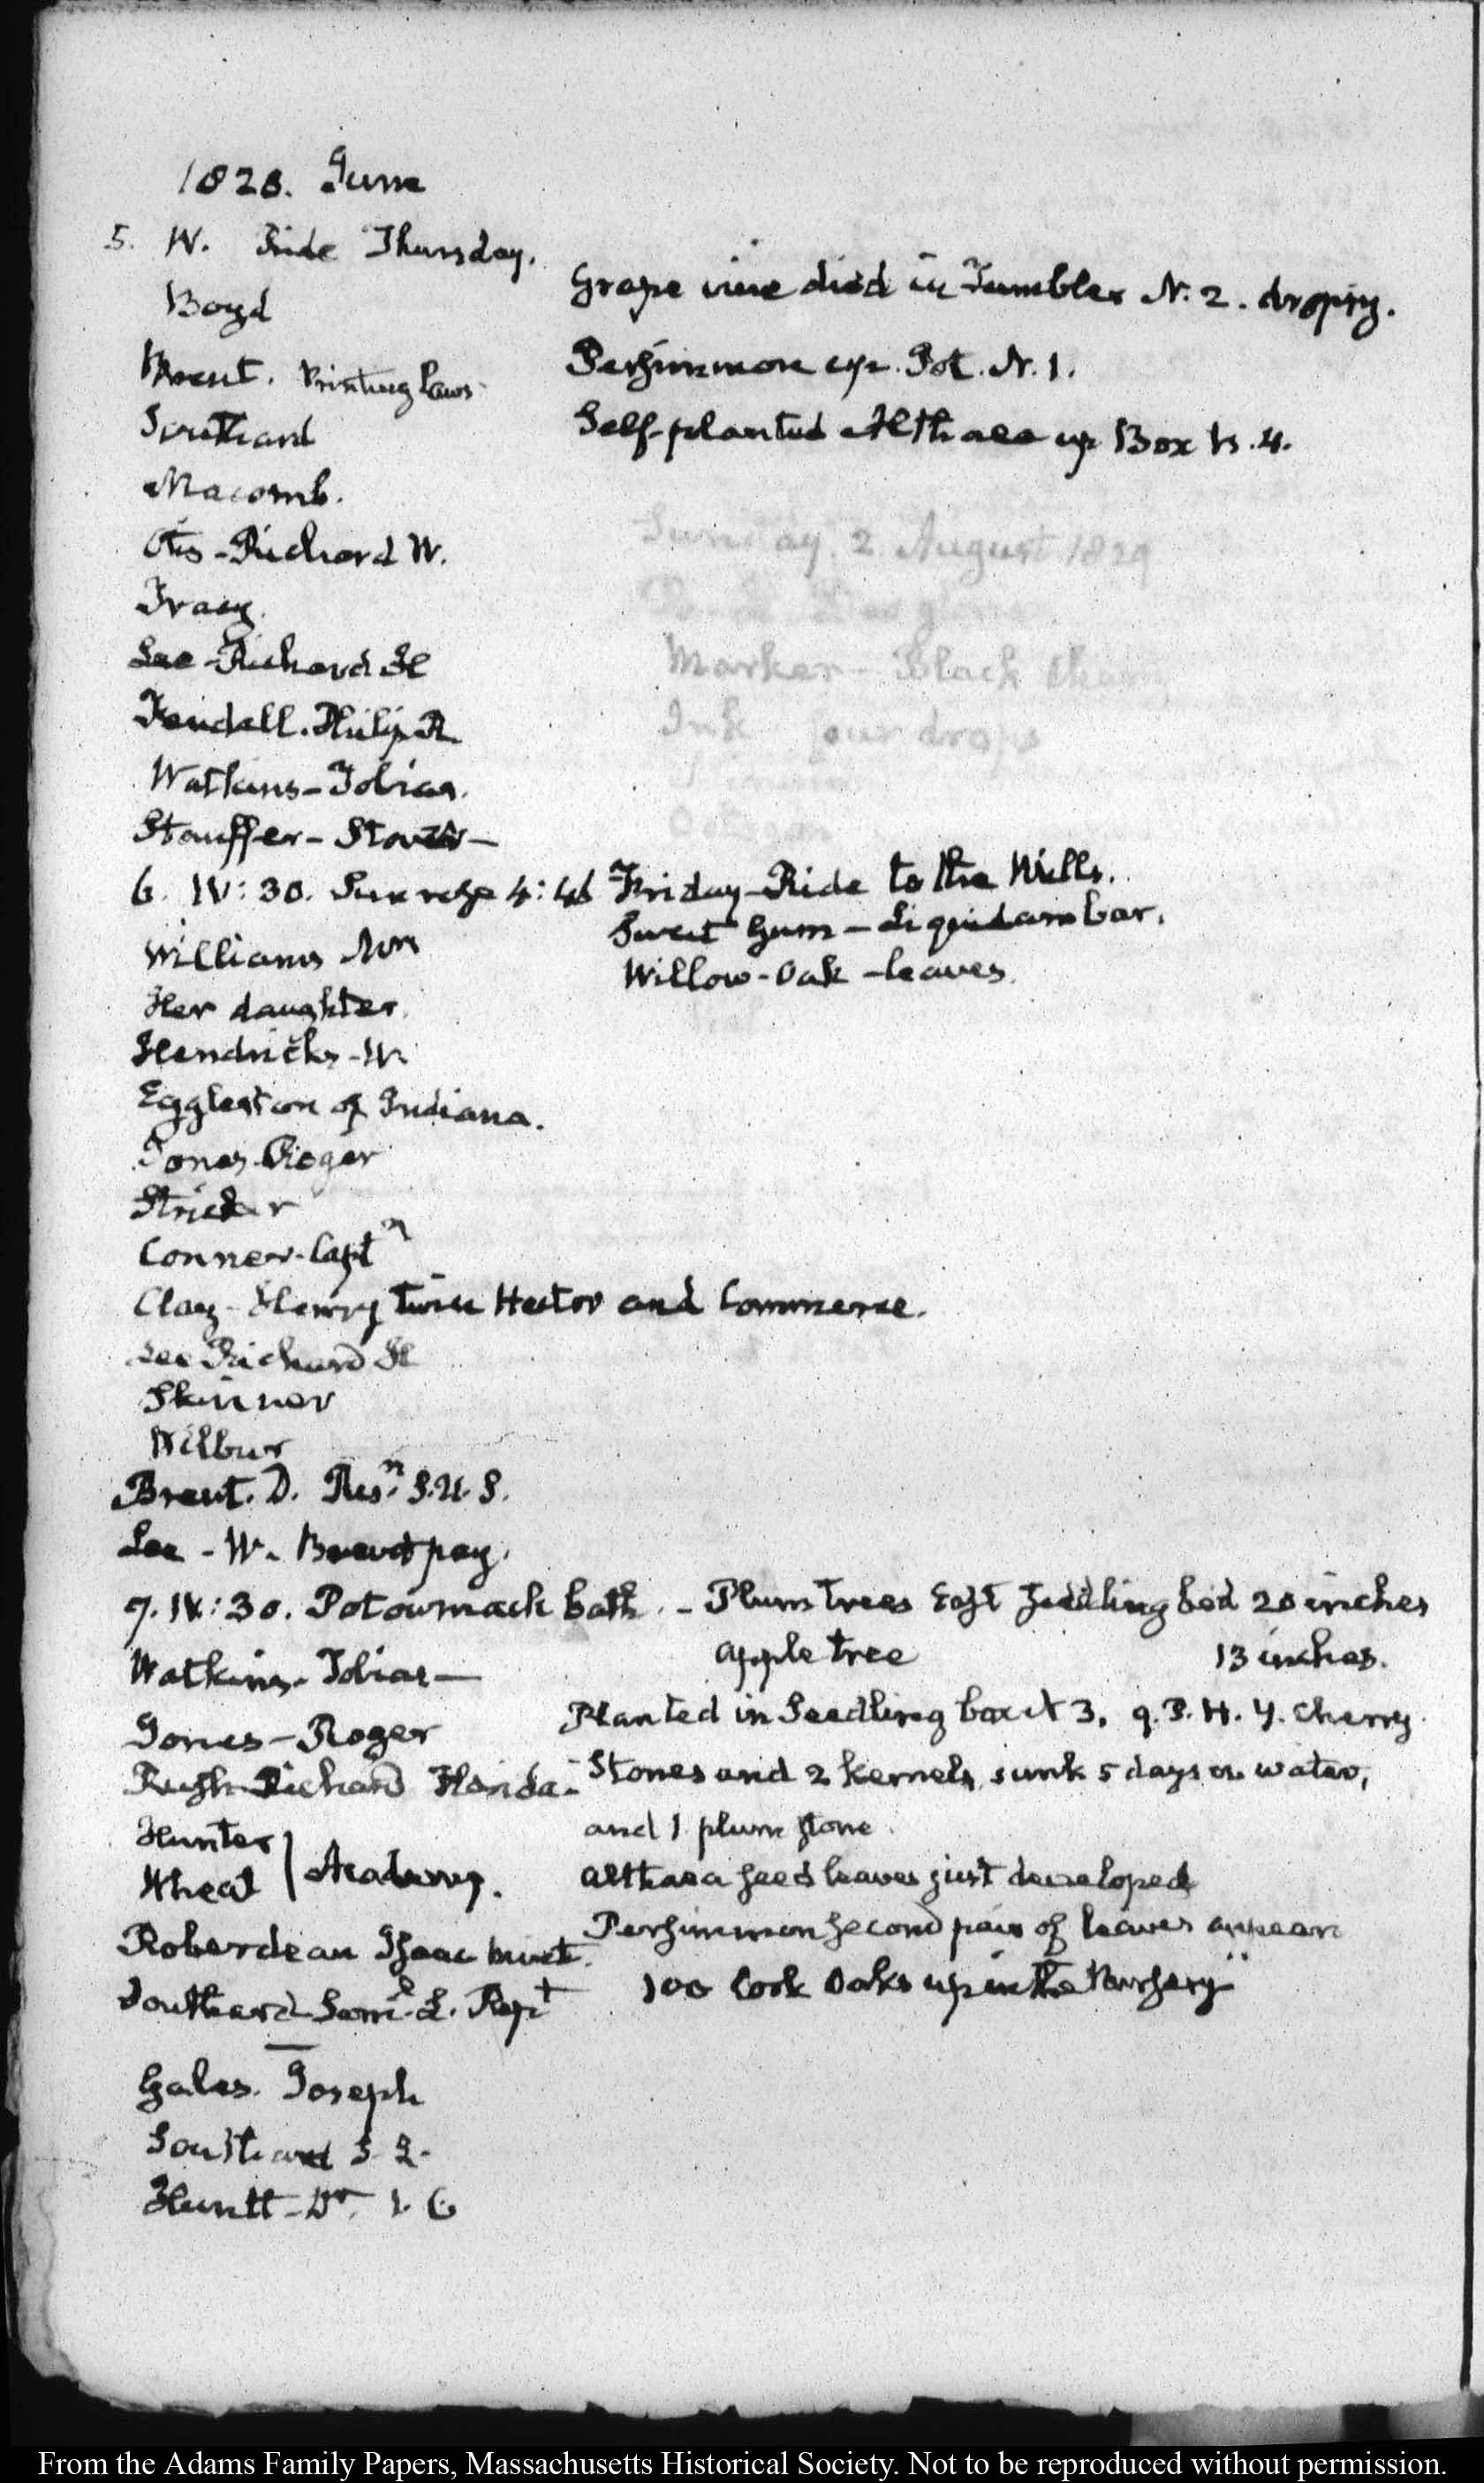 1828. June
5. IV. Ride Thursday.
Boyd
Grape vine died in Tumbler N. 2. dropsy.
Brent. Printing Laws
Persimmon up. Pot. N. 1.
Southard
Self-planted Althaea up Box N. 4.
Macomb.
Otis - Richard W.
Sunday. 2 August 1829
Tracy.
Lee - Richard H
Marker - Black
Fendall. Philip R.
Ink four drops
Watkins - Tobias.
Stauffer - Stover -
Octagon
6. IV: 30. Sun rose 4:46 Friday - Ride to the Mills.
Sweet Gum - Liquidambar.
Williams Mrs
Willow-Oak - leaves.
Her daughter.
Hendricks - W.
Eggleston of Indiana.
Jones. Roger
Stricker
Conner - Captn
Clay - Henry twice Hector and Commerce.
Lee Richard H
Skinner
Wilbur
Brent. D. Resn. S.U.S.
Lee - W. Brevet pay.
7. IV: 30. Potowmack bath. - Plum trees East Seedling bed 20 inches
apple tree 13 inches.
Watkins. Tobias -
Planted in Seedling box N 3, 9. P. H. Y. Cherry
Jones - Roger
Stones and 2 kernels, sunk 5 days in water,
Rush Richard Florida -
and 1 plum stone.
Hunter
Wheat } Academy.
Althaea seed leaves just developed
Persimmon second pair of leaves appear
Roberdeau Isaac brvet.
100 Cork Oaks up in the Nursery
Southard Saml. L. Rept
Gales. Joseph
Southard S. L.
Huntt - Dr. 1. 6